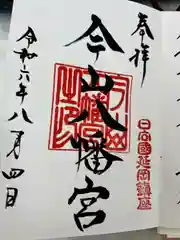 奉拝
今山八幡宮
日向國延岡鎮座
令和六年八月四日